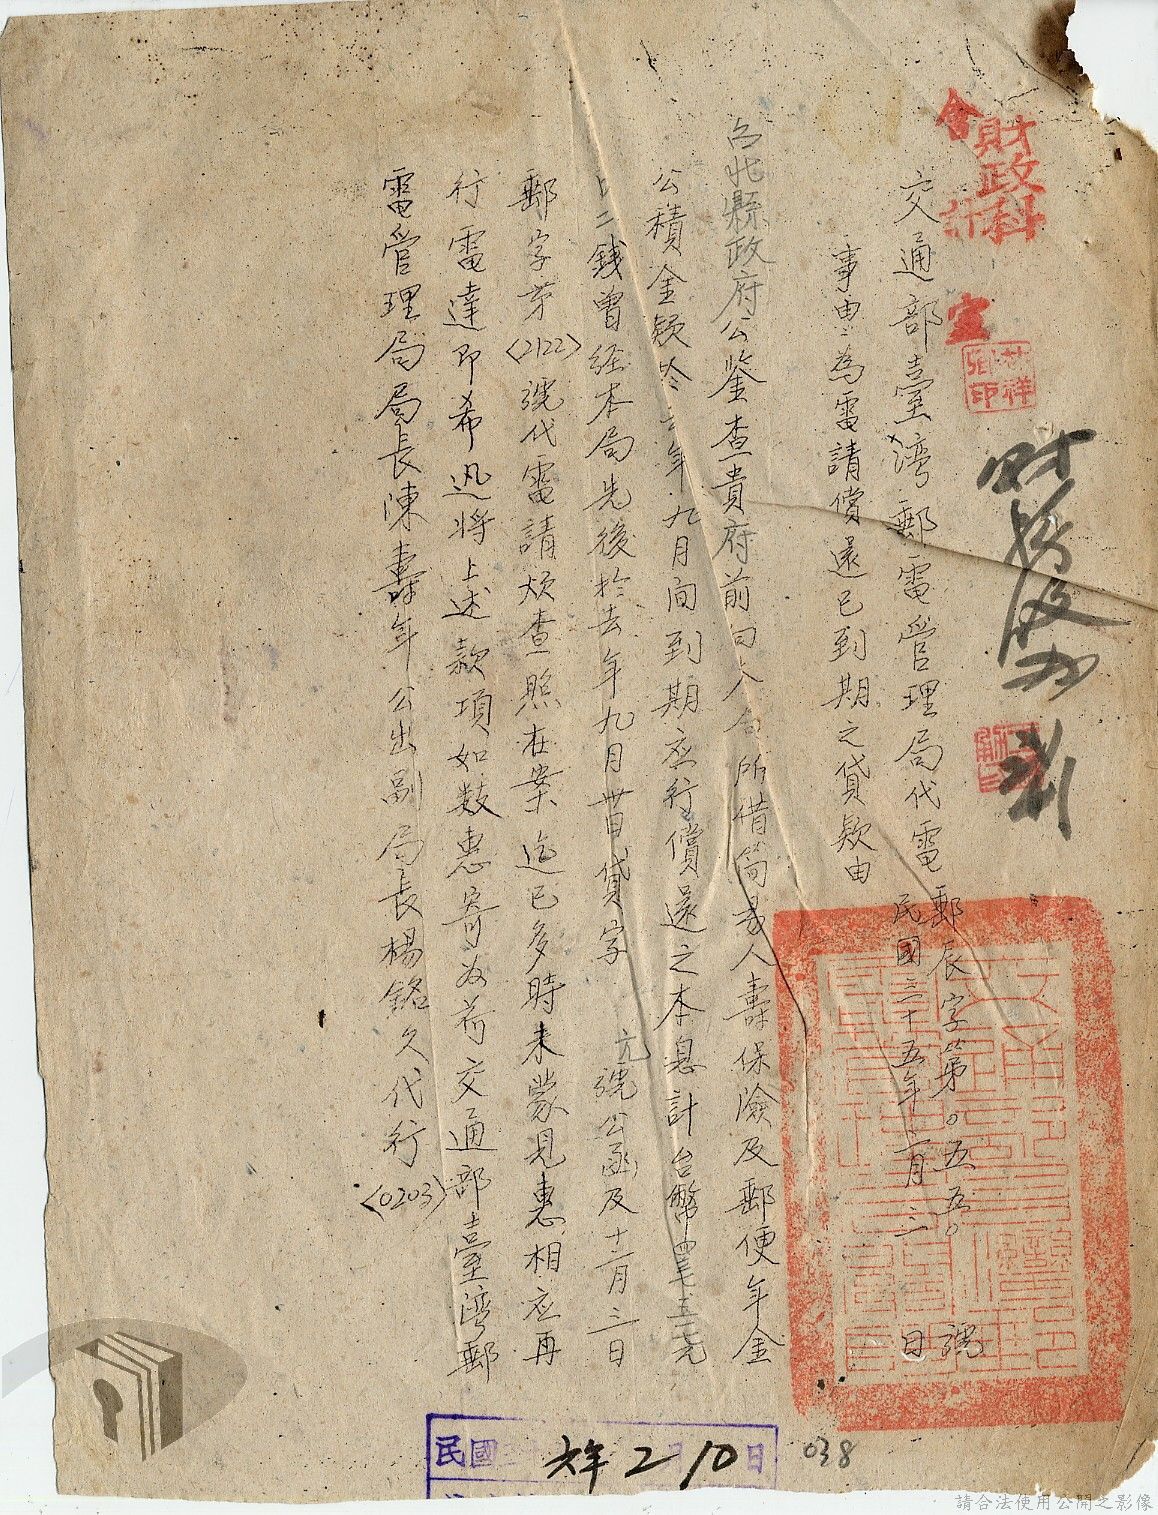 財政科
會
室
交通部臺灣郵電管理局代電
郵辰字第〇五五〇號
民國三十五年二月三日
事由：為電請償還已到期之貸款由
台北縣政府公鑒查貴府前向人合所借簡易人壽保險及郵便年金
公積金款於去年九月間到期应行償還之本息計台幣
二錢曾経本局先後於去年九月廿日貸字元號公函及十一月三日
郵字第(2122)號代電請煩查照在案迄已多時未蒙見惠相应再
行電達即希迅將上述款項如数惠寄為荷交通部臺灣郵
電管理局局長陳壽年公出副局長楊銘久代行(0203)
民國 六年2月10日
038
請合法使用公開之影像